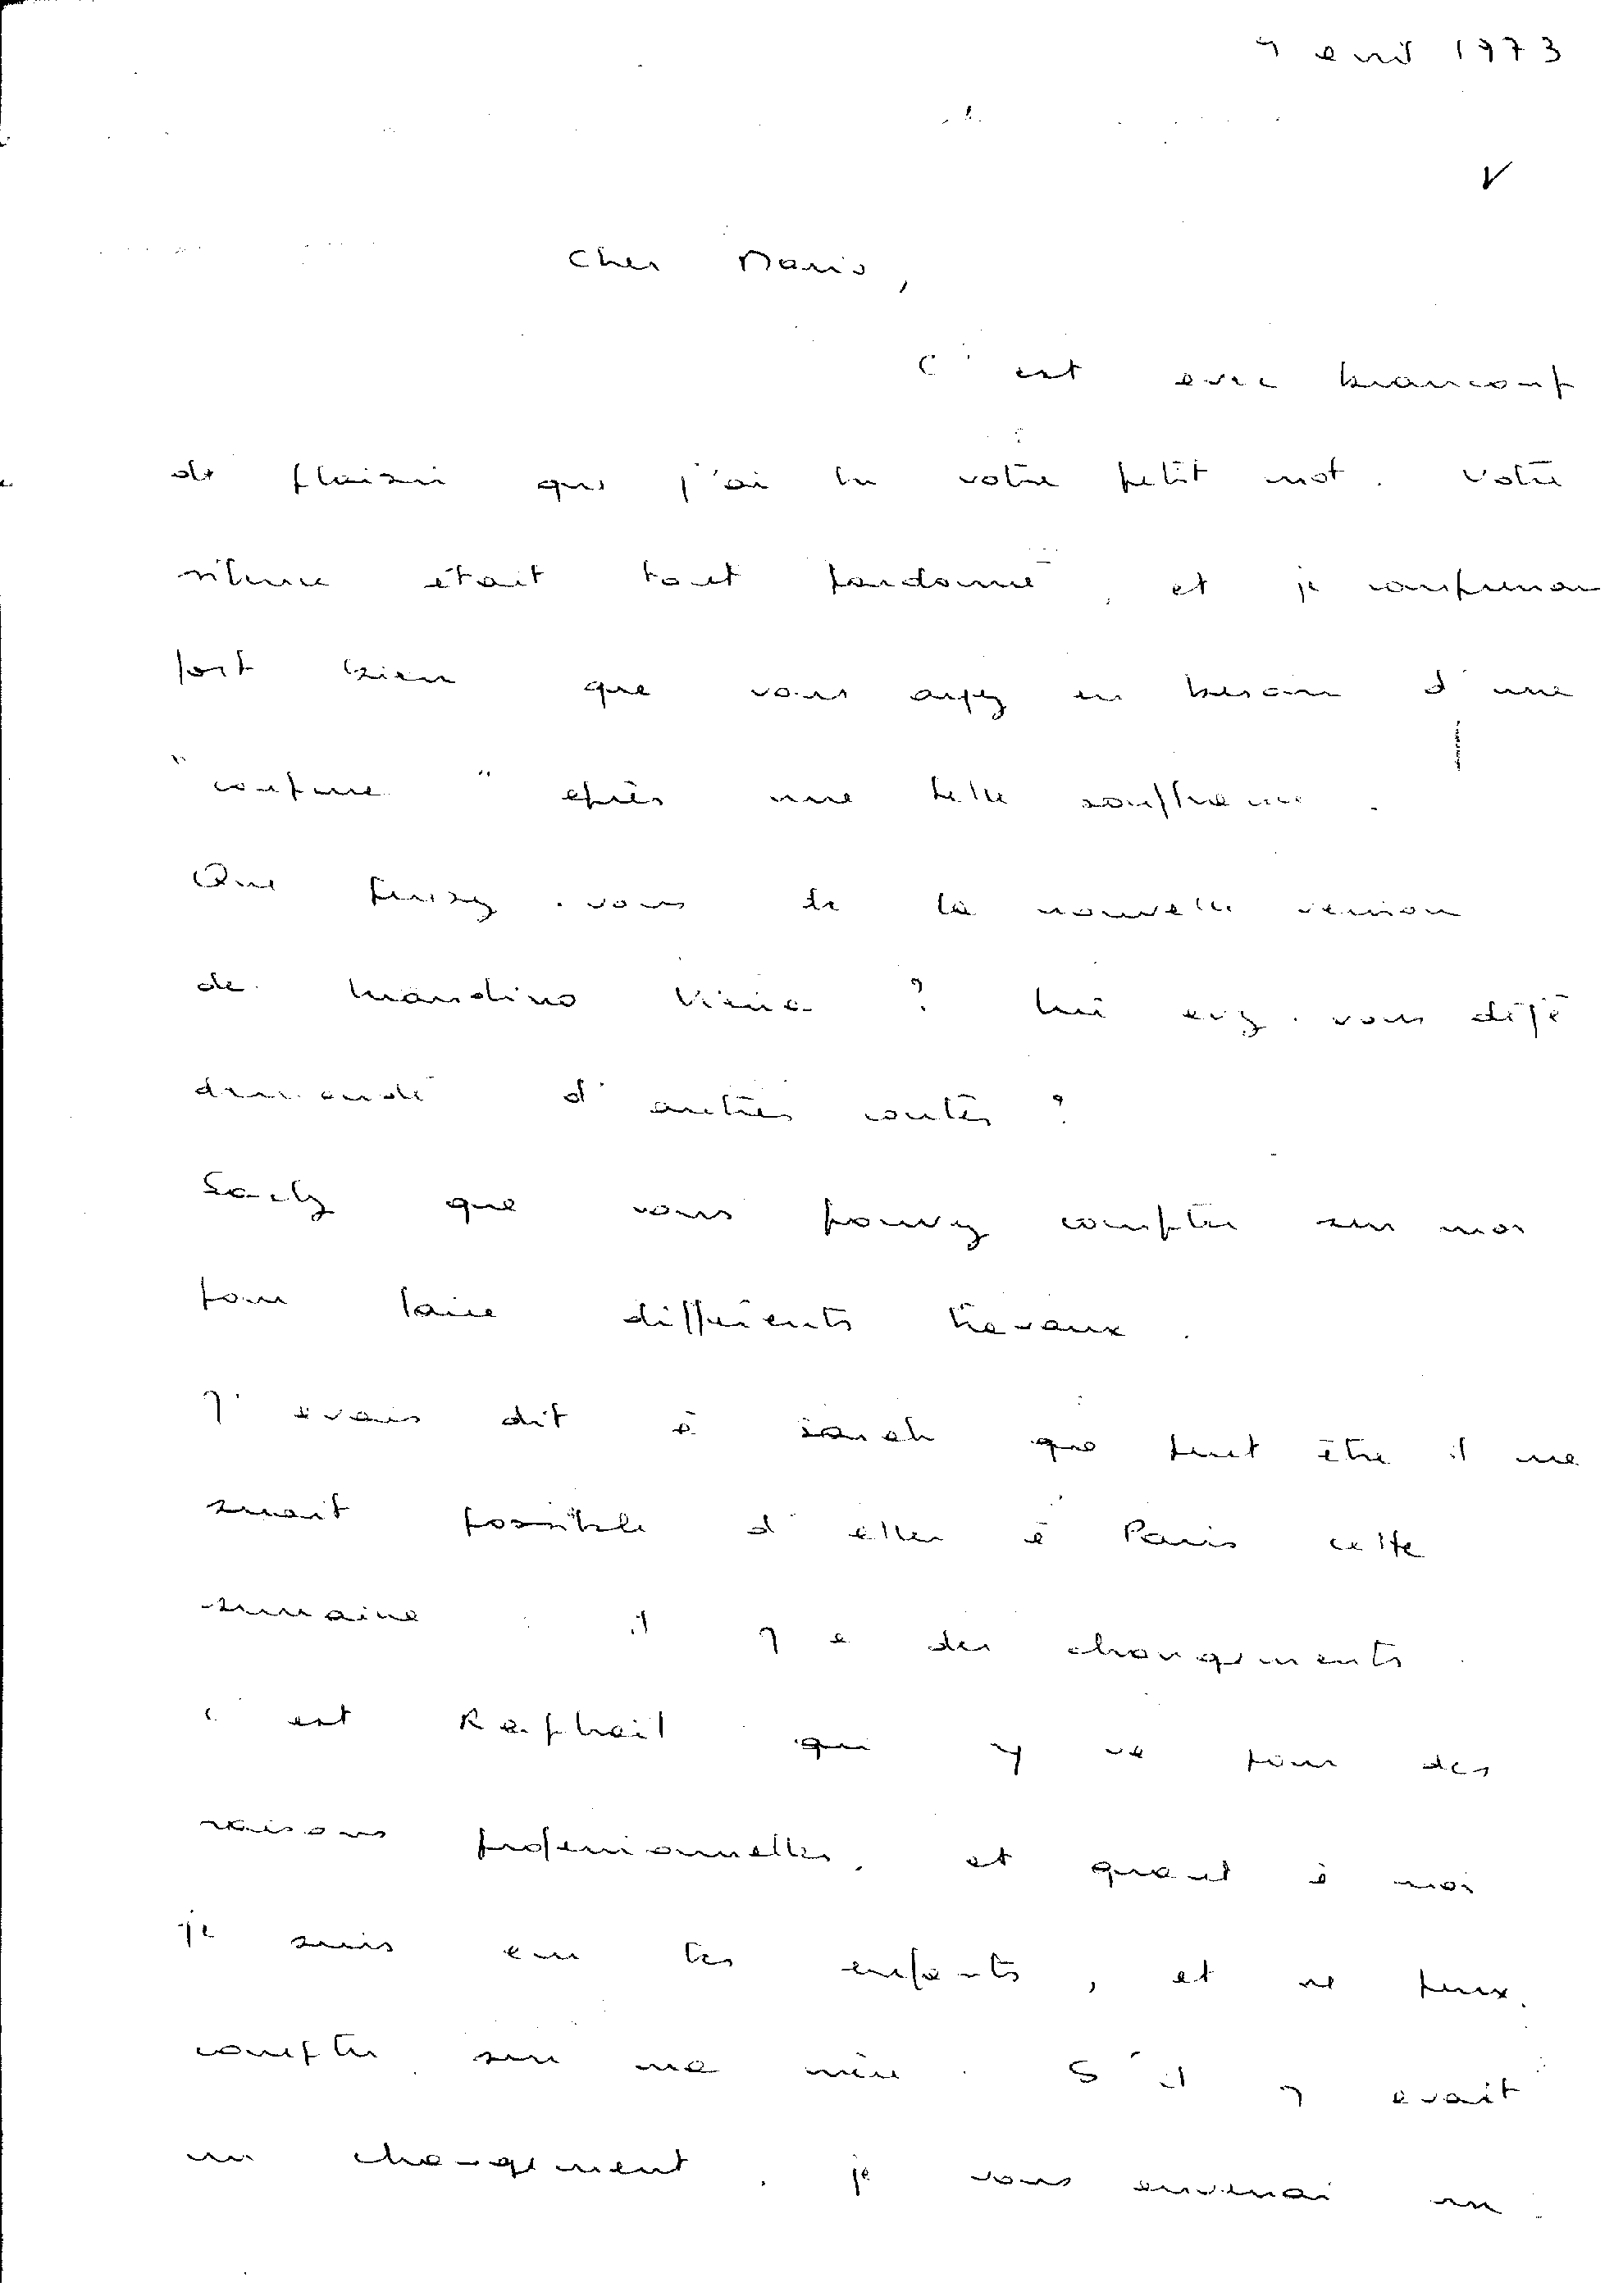 avril 1973
Cher Mario,
C'est avec beaucoup
de plaisir que j'ai lu votre petit mot. Votre
silence était tout pardonné, et je comprenais
fort bien que vous ayez eu besoin d'une
"coupure" après une telle souffrance.
Que pensez-vous de la nouvelle version
de Luandino Vieira ? Lui avez-vous déjà
demandé d'autres contes ?
Sachez que vous pouvez compter sur moi
pour faire différents travaux.
J'avais dit à Sarah que peut être il me
serait possible d'aller à Paris cette
semaine. il y a des changements.
C'est Raphaël qui y va pour des
raisons professionnelles, et quant à moi
je suis les enfants, et ne peux
compter sur ma mère. S'il y avait
un changement, je vous enverrai un